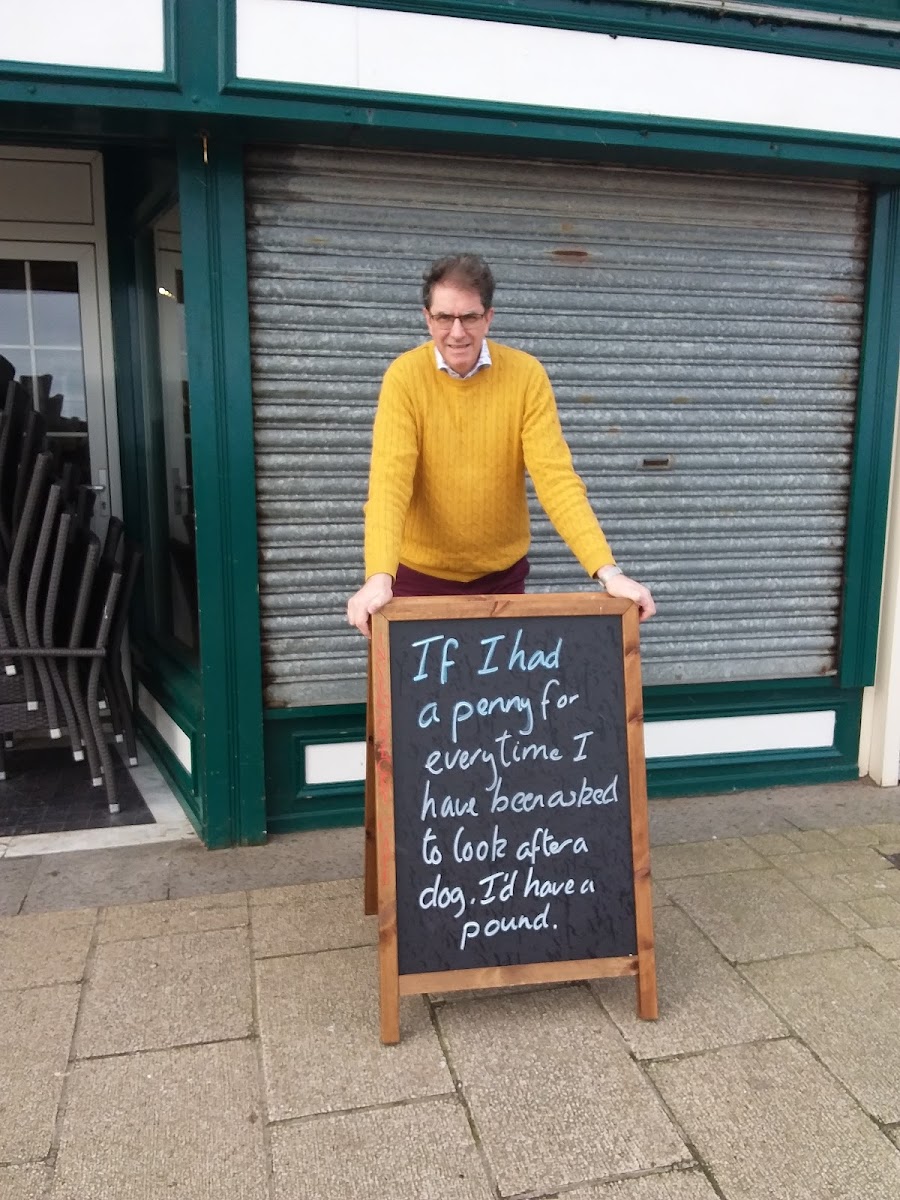 If I had
a penny for
everytime I
have been asked
to look after a
dog. I'd have a
pound.